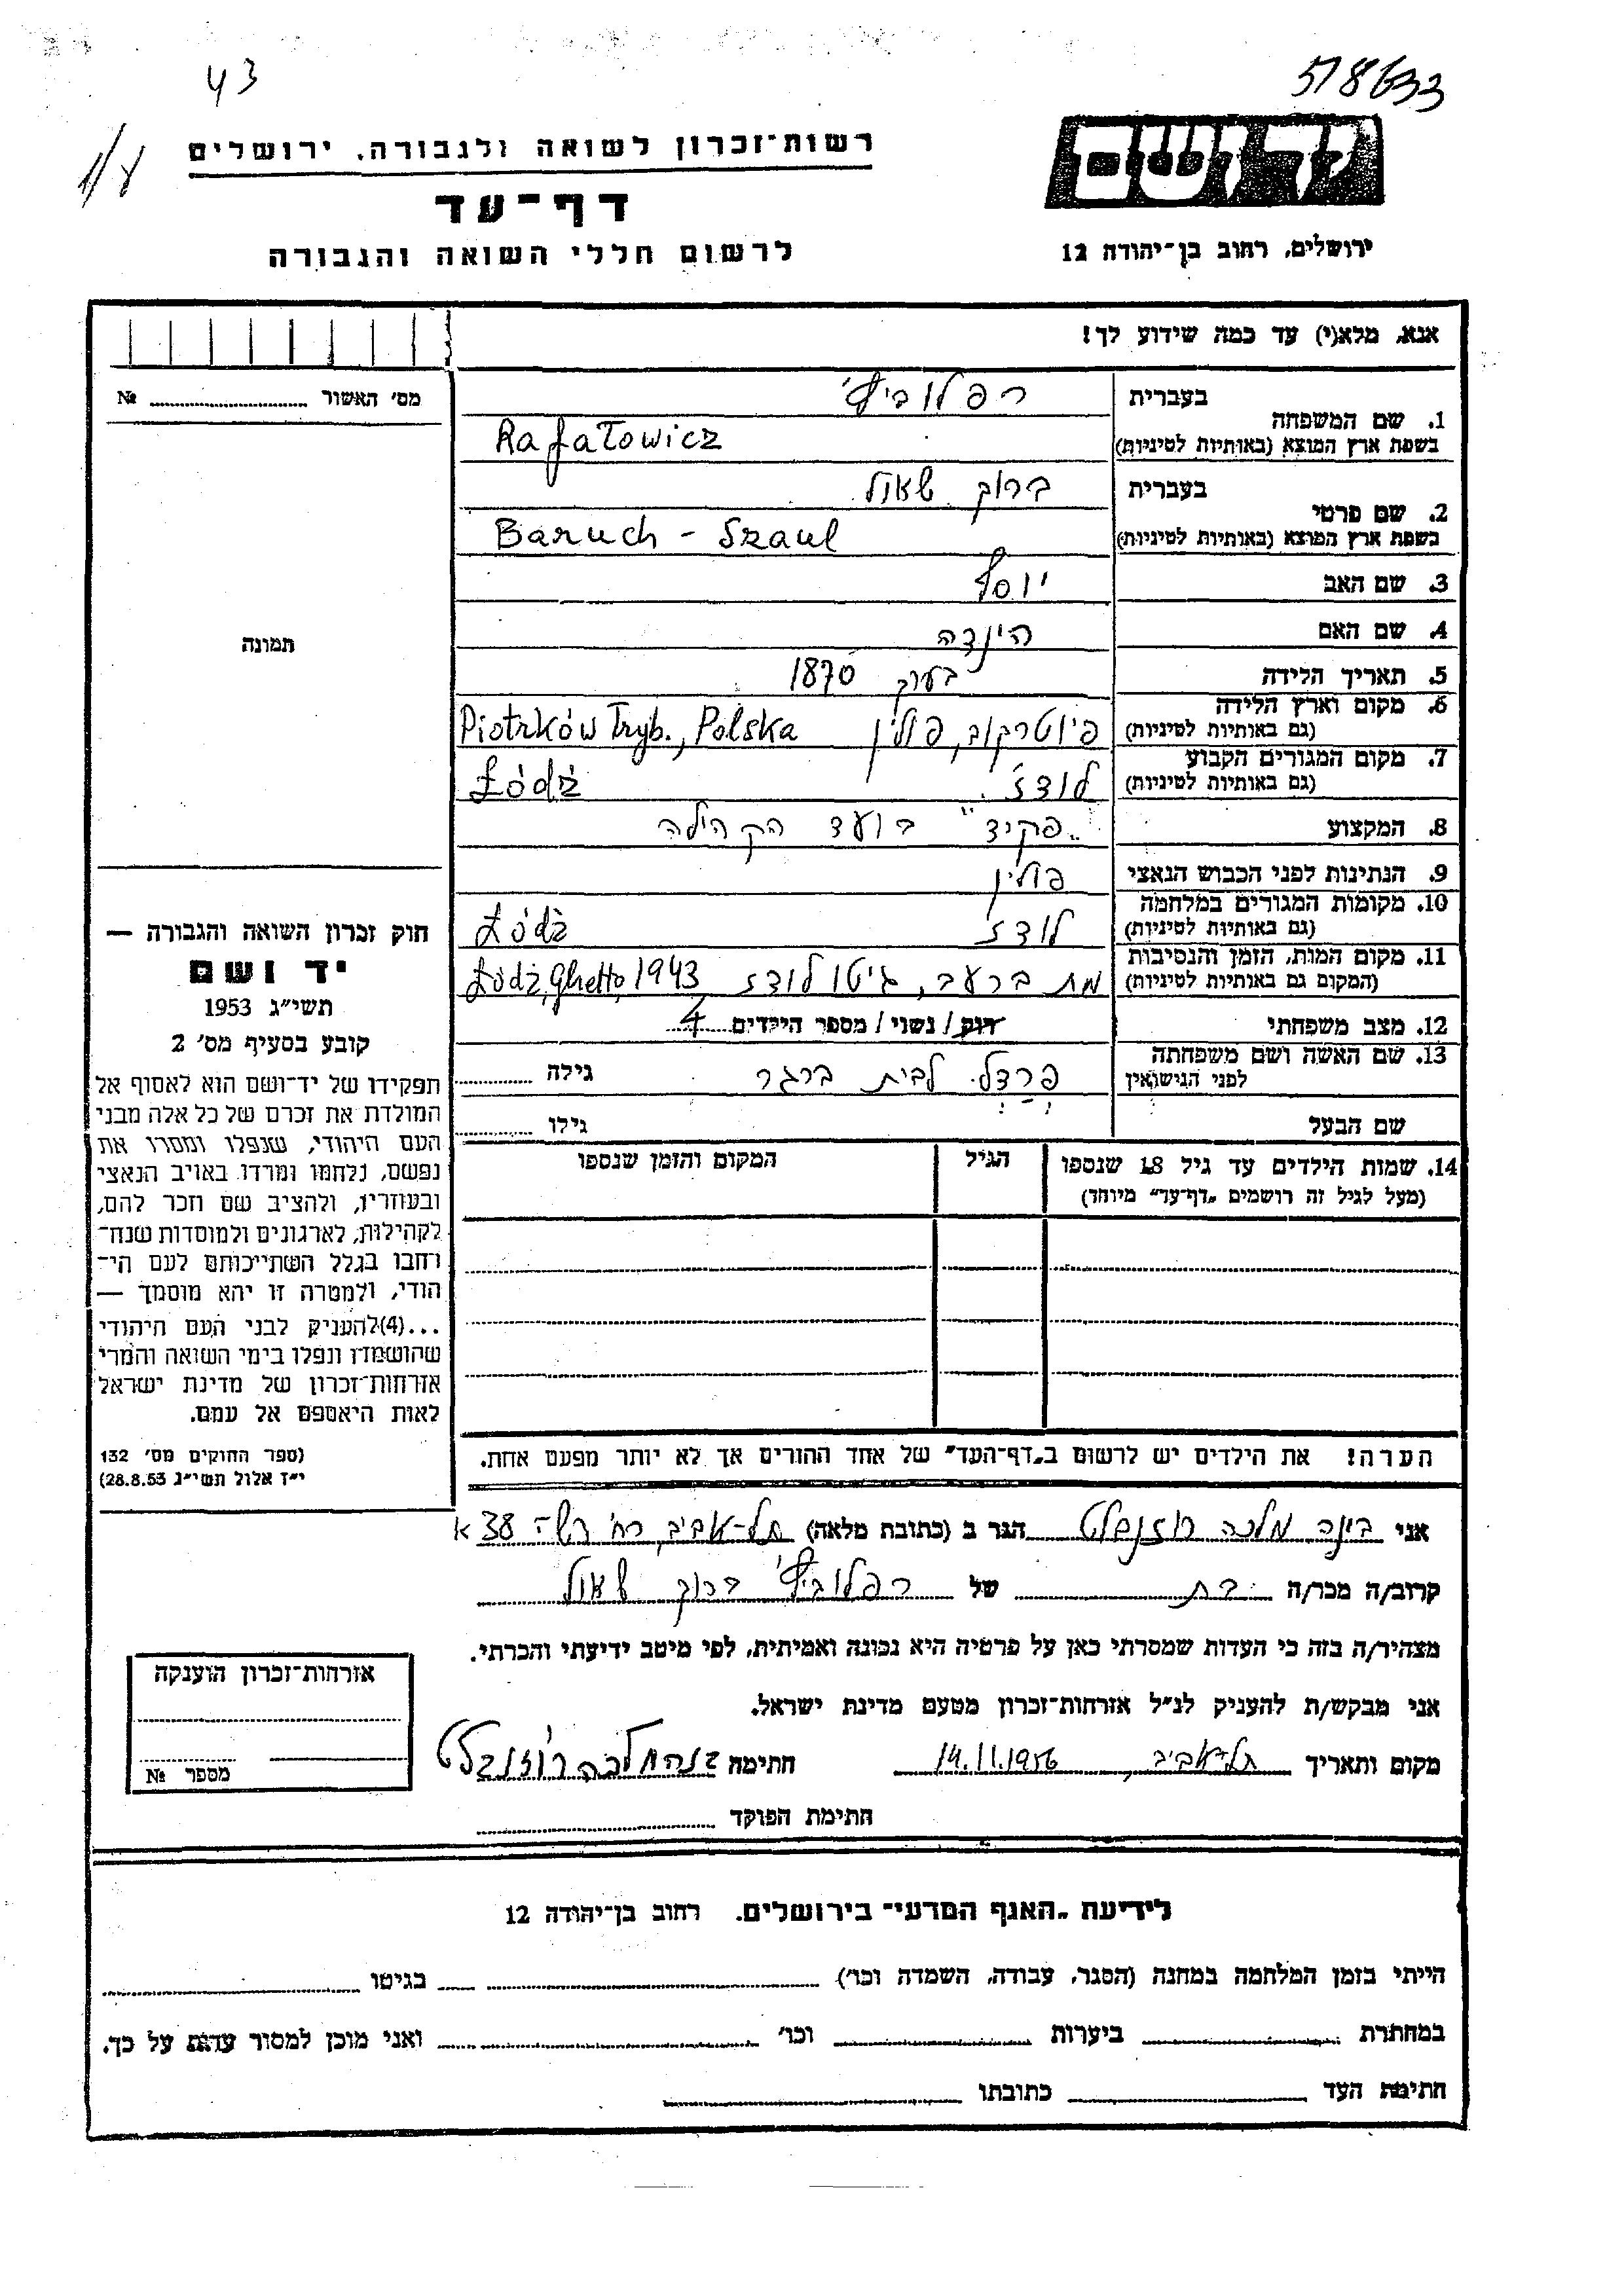 43
518633
1/8
יד ושם
רשות־זכרון לשואה ולגבורה, ירושלים
דף־עד
לרשום חללי השואה והגבורה
ירושלים, רחוב בן־יהודה 12
אנא, מלא(י) עד כמה שידוע לך!
מס' האשור № ....................
תמונה
1. שם המשפחה
בעברית רפלוביץ'
בשפת ארץ המוצא (באותיות לטיניות) Rafałowicz
2. שם פרטי
בעברית ברוך שאול
בשפת ארץ המוצא (באותיות לטיניות) Baruch - Szaul
3. שם האב יוסף
4. שם האם הינדה
5. תאריך הלידה בערך 1870
6. מקום וארץ הלידה
(גם באותיות לטיניות) פיוטרקוב, פולין Piotrków Tryb., Polska
7. מקום המגורים הקבוע
(גם באותיות לטיניות) לודז' Łódź
8. המקצוע "פקיד" בועד הקהילה
9. הנתינות לפני הכבוש הנאצי פולין
10. מקומות המגורים במלחמה
(גם באותיות לטיניות) לודז Łódź
11. מקום המות, הזמן והנסיבות
(המקום גם באותיות לטיניות) מת ברעב, גיטו לודז Łódź, Ghetto, 1943
12. מצב משפחתי רוק/ נשוי/ מספר הילדים 4
13. שם האשה ושם משפחתה
לפני הנישואין פרדל לבית ברגר גילה ............
שם הבעל גילו ............
14. שמות הילדים עד גיל 18 שנספו
(מעל לגיל זה רושמים „דף־עד" מיוחד)
הגיל
המקום והזמן שנספו
הערה! את הילדים יש לרשום ב„דף־העד" של אחד ההורים אך לא יותר מפעם אחת.
חוק זכרון השואה והגבורה —
יד ושם
תשי"ג 1953
קובע בסעיף מס' 2
תפקידו של יד־ושם הוא לאסוף אל
המולדת את זכרם של כל אלה מבני
העם היהודי, שנפלו ומסרו את
נפשם, נלחמו ומרדו באויב הנאצי
ובעוזריו, ולהציב שם וזכר להם,
לקהילות, לארגונים ולמוסדות שנח־
רחבו בגלל השתייכותם לעם הי־
הודי, ולמטרה זו יהא מוסמך —
...(4) להעניק לבני העם היהודי
שהושמדו ונפלו בימי השואה והמרי
אזרחות־זכרון של מדינת ישראל
לאות היאספם אל עמם.
(ספר החוקים מס' 132
י"ז אלול תשי"ג 28.8.53)
אני בינה מלכה רוזנבלט הגר ב (כתובת מלאה) תל-אביב, רח' רש"י 38 א
קרוב/ה מכר/ה בת של רפלוביץ' ברוך שאול
מצהיר/ה בזה כי העדות שמסרתי כאן על פרטיה היא נכונה ואמיתית, לפי מיטב ידיעתי והכרתי.
אני מבקש/ת להעניק לנ"ל אזרחות־זכרון מטעם מדינת ישראל.
מקום ותאריך תל-אביב, 14.11.1956 חתימה בינה מלכה רוזנבלט
חתימת הפוקד
אזרחות־זכרון הוענקה
מספר №
לידיעת „האגף המדעי" בירושלים. רחוב בן־יהודה 12
הייתי בזמן המלחמה במחנה (הסגר, עבודה, השמדה וכו') בגיטו
במחתרת ביערות וכו' ואני מוכן למסור עדות על כך.
חתימת העד כתובתו